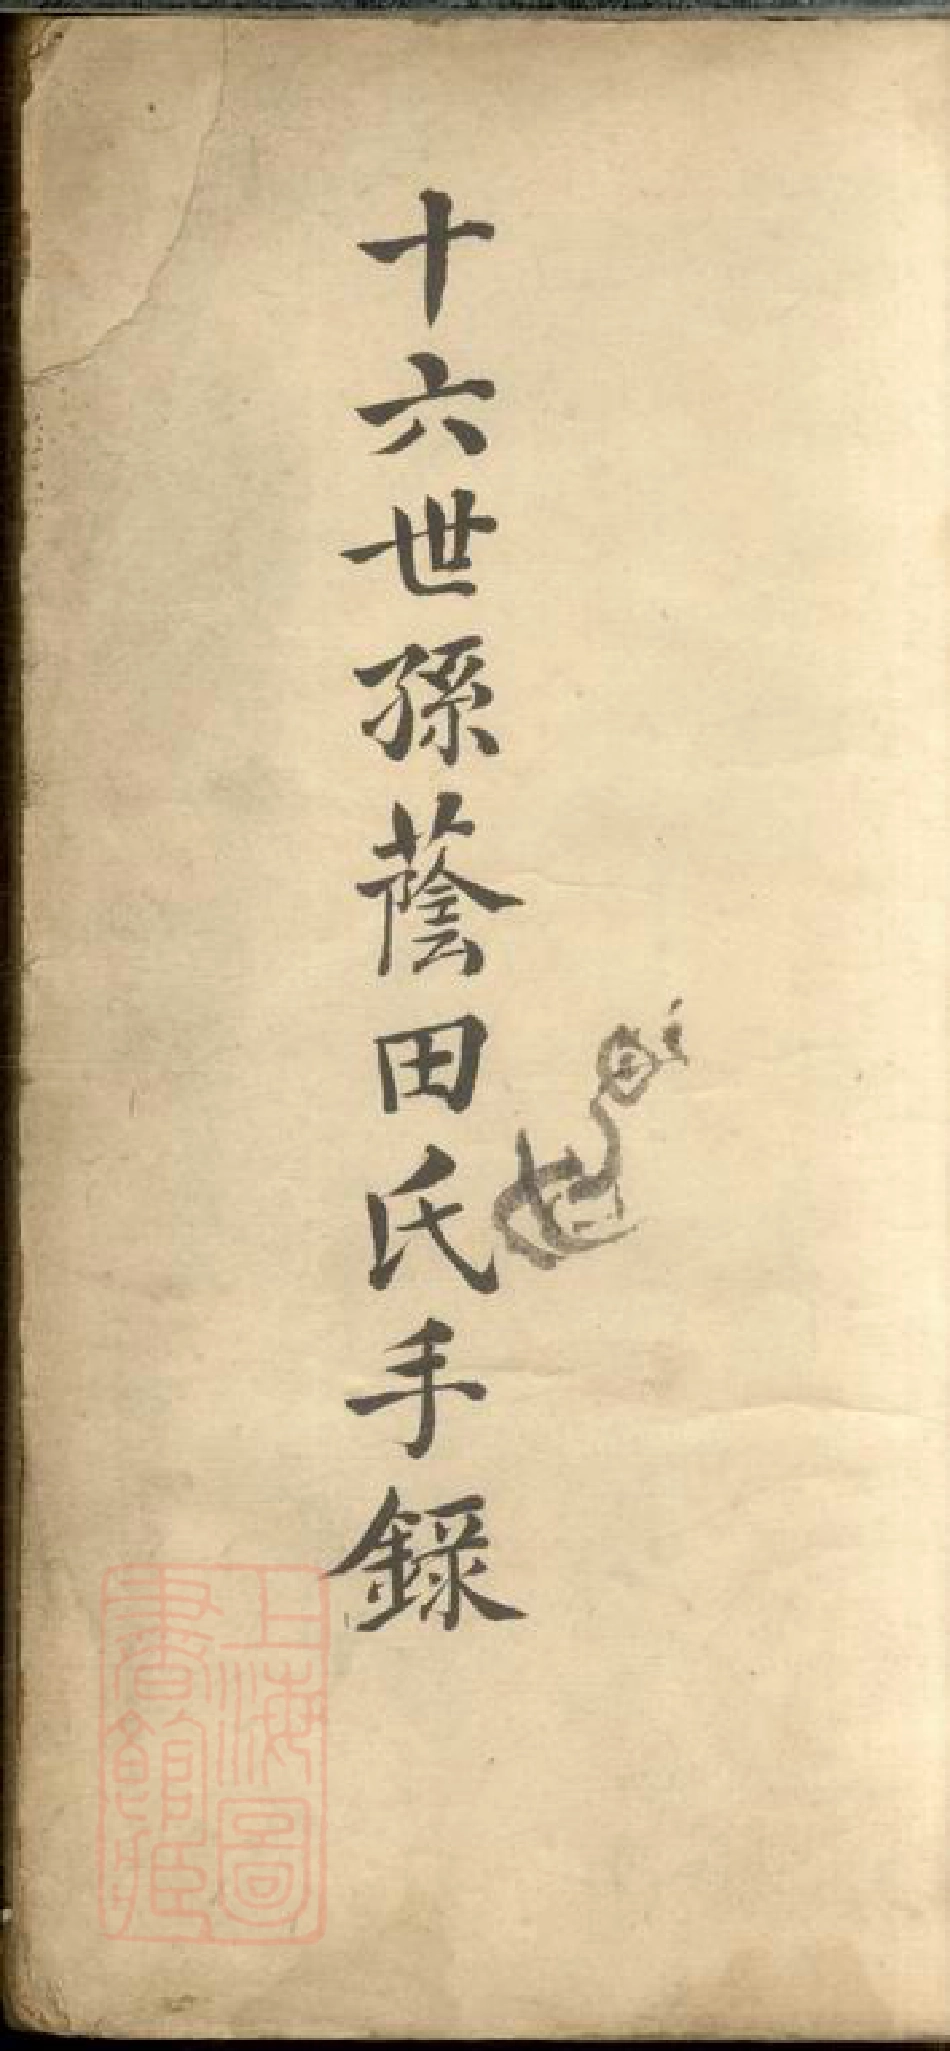 十六世孫蔭田氏手錄
上海圖
書館藏